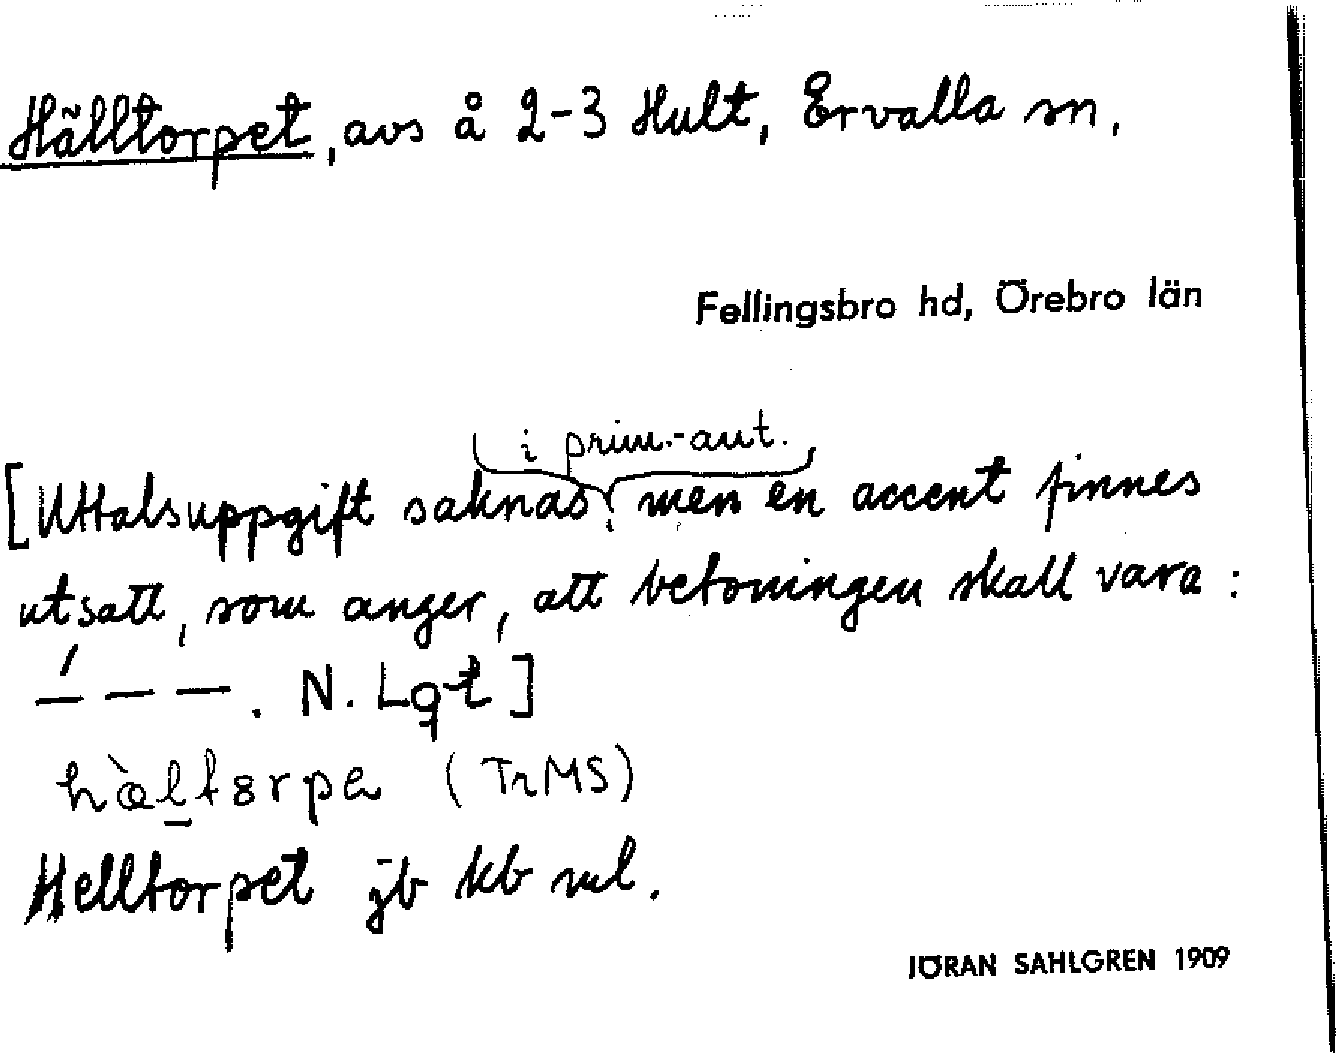 Hälltorpet, avs å 2-3 Hult, Ervalla sn.
Fellingsbro hd, Örebro län
i prim.-ant.
[Uttalsuppgift saknas, men en accent finnes
utsatt, som anger, att betoningen skall vara:
–́ – –. N. Lqt]
hæ̀l̠tɷrpə (TrMS)
Helltorpet jb kb ml.
JÖRAN SAHLGREN 1909